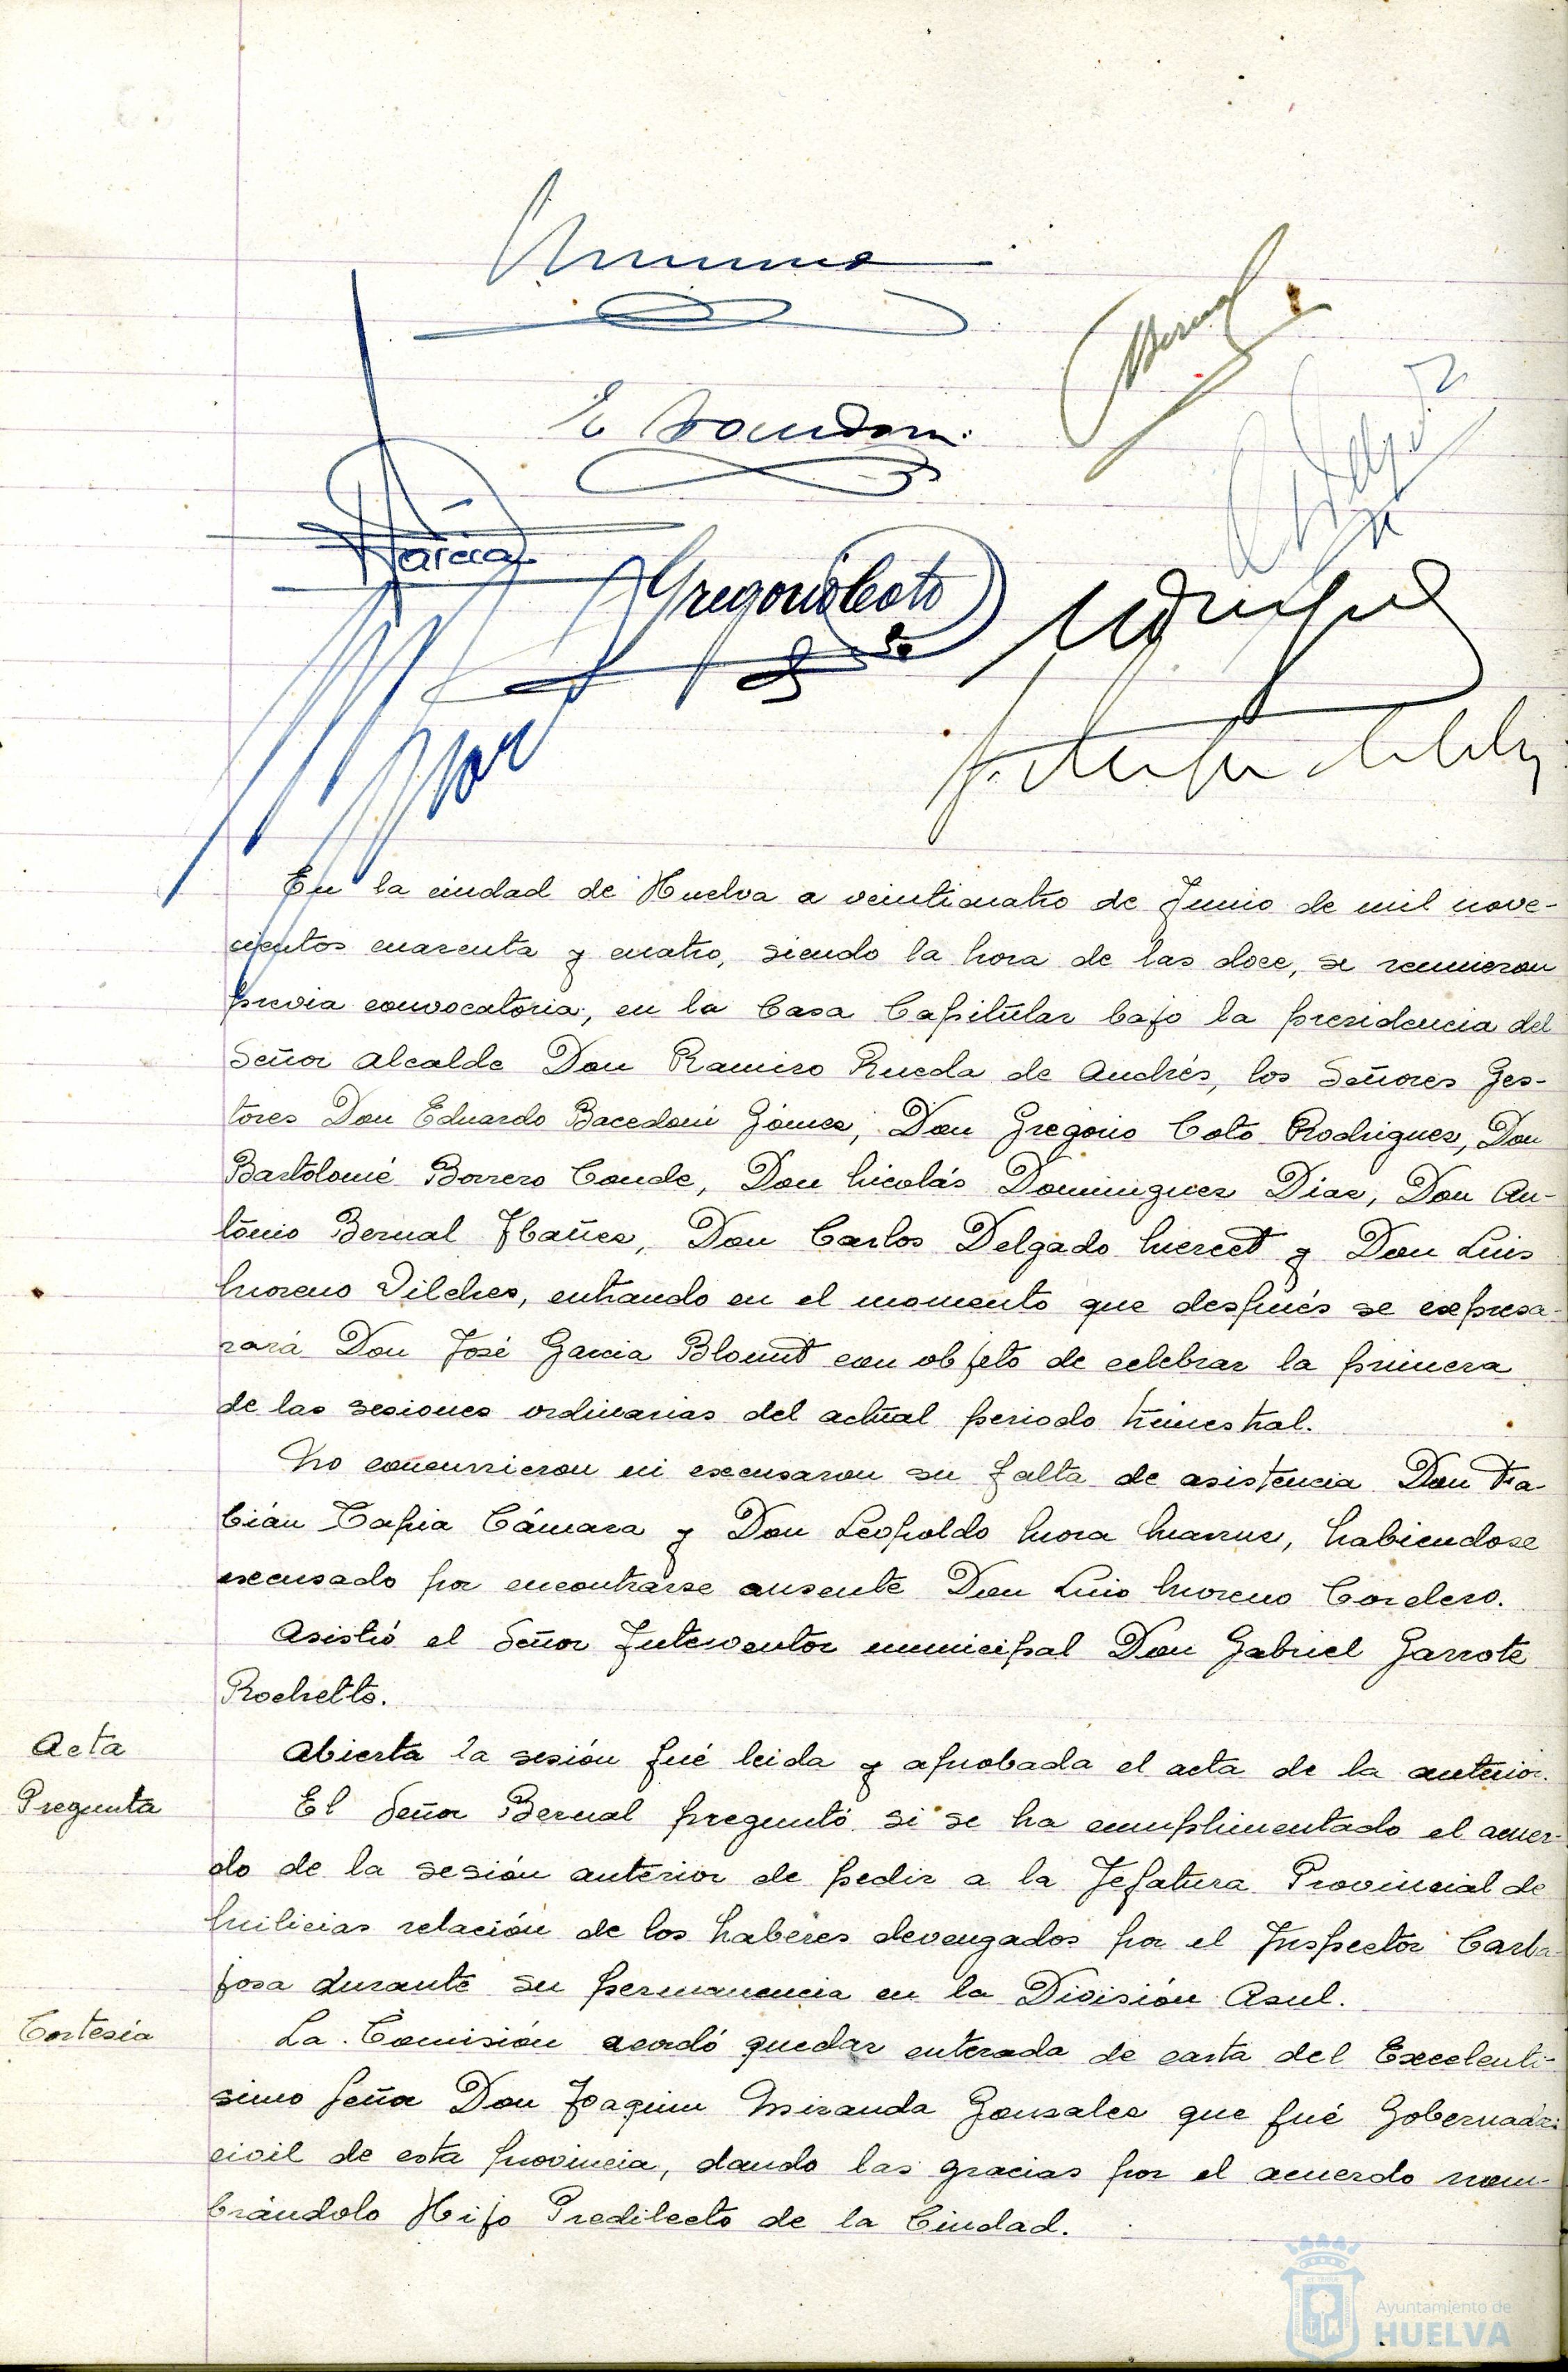 Bernal
García
Gregorio Coto
En la ciudad de Huelva a veinticuatro de Junio de mil nove-
cientos cuarenta y cuatro, siendo la hora de las doce, se reunieron
previa convocatoria, en la Casa Capitular bajo la presidencia del
Señor Alcalde Don Ramiro Rueda de Andrés, los Señores Ges-
tores Don Eduardo Bacedoni Gómez, Don Gregorio Coto Rodriguez, Don
Bartolomé Borrero Conde, Don Nicolás Dominguez Diaz, Don An-
tonio Bernal Ibañez, Don Carlos Delgado Mercet y Don Luis
Moreno Vilches, entrando en el momento que después se expresa-
rará Don José Garcia Blount con objeto de celebrar la primera
de las sesiones ordinarias del actual periodo trimestral.
No concurrieron ni excusaron su falta de asistencia Don Fa-
bián Tapia Cámara y Don Leopoldo Mora, habiendose
excusado por encontrarse ausente Don Luis Moreno Cordero.
Asistió el Señor Interventor municipal Don Gabriel Garrote
Rochetto.
Acta
Abierta la sesión fué leida y aprobada el acta de la anterior.
Pregunta
El Señor Bernal preguntó si se ha cumplimentado el acuer-
do de la sesión anterior de pedir a la Jefatura Provincial de
Milicias relación de los haberes devengados por el Inspector Carba-
josa durante su permanencia en la División Azul.
Cortesía
La Comisión acordó quedar enterada de carta del Excelentí-
simo Señor Don Joaquin Miranda Gonzalez que fué Gobernador
civil de esta provincia, dando las gracias por el acuerdo nom-
brándolo Hijo Predilecto de la Ciudad.
Ayuntamiento de
HUELVA